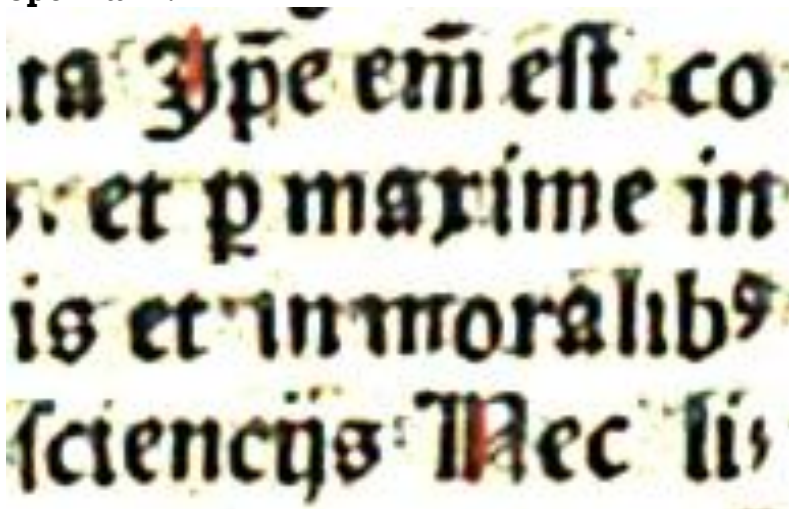 ta Ip̄e em̄ est co
et ꝑ maxime in
is et in moralibꝰ
ſciencijs: Nec li